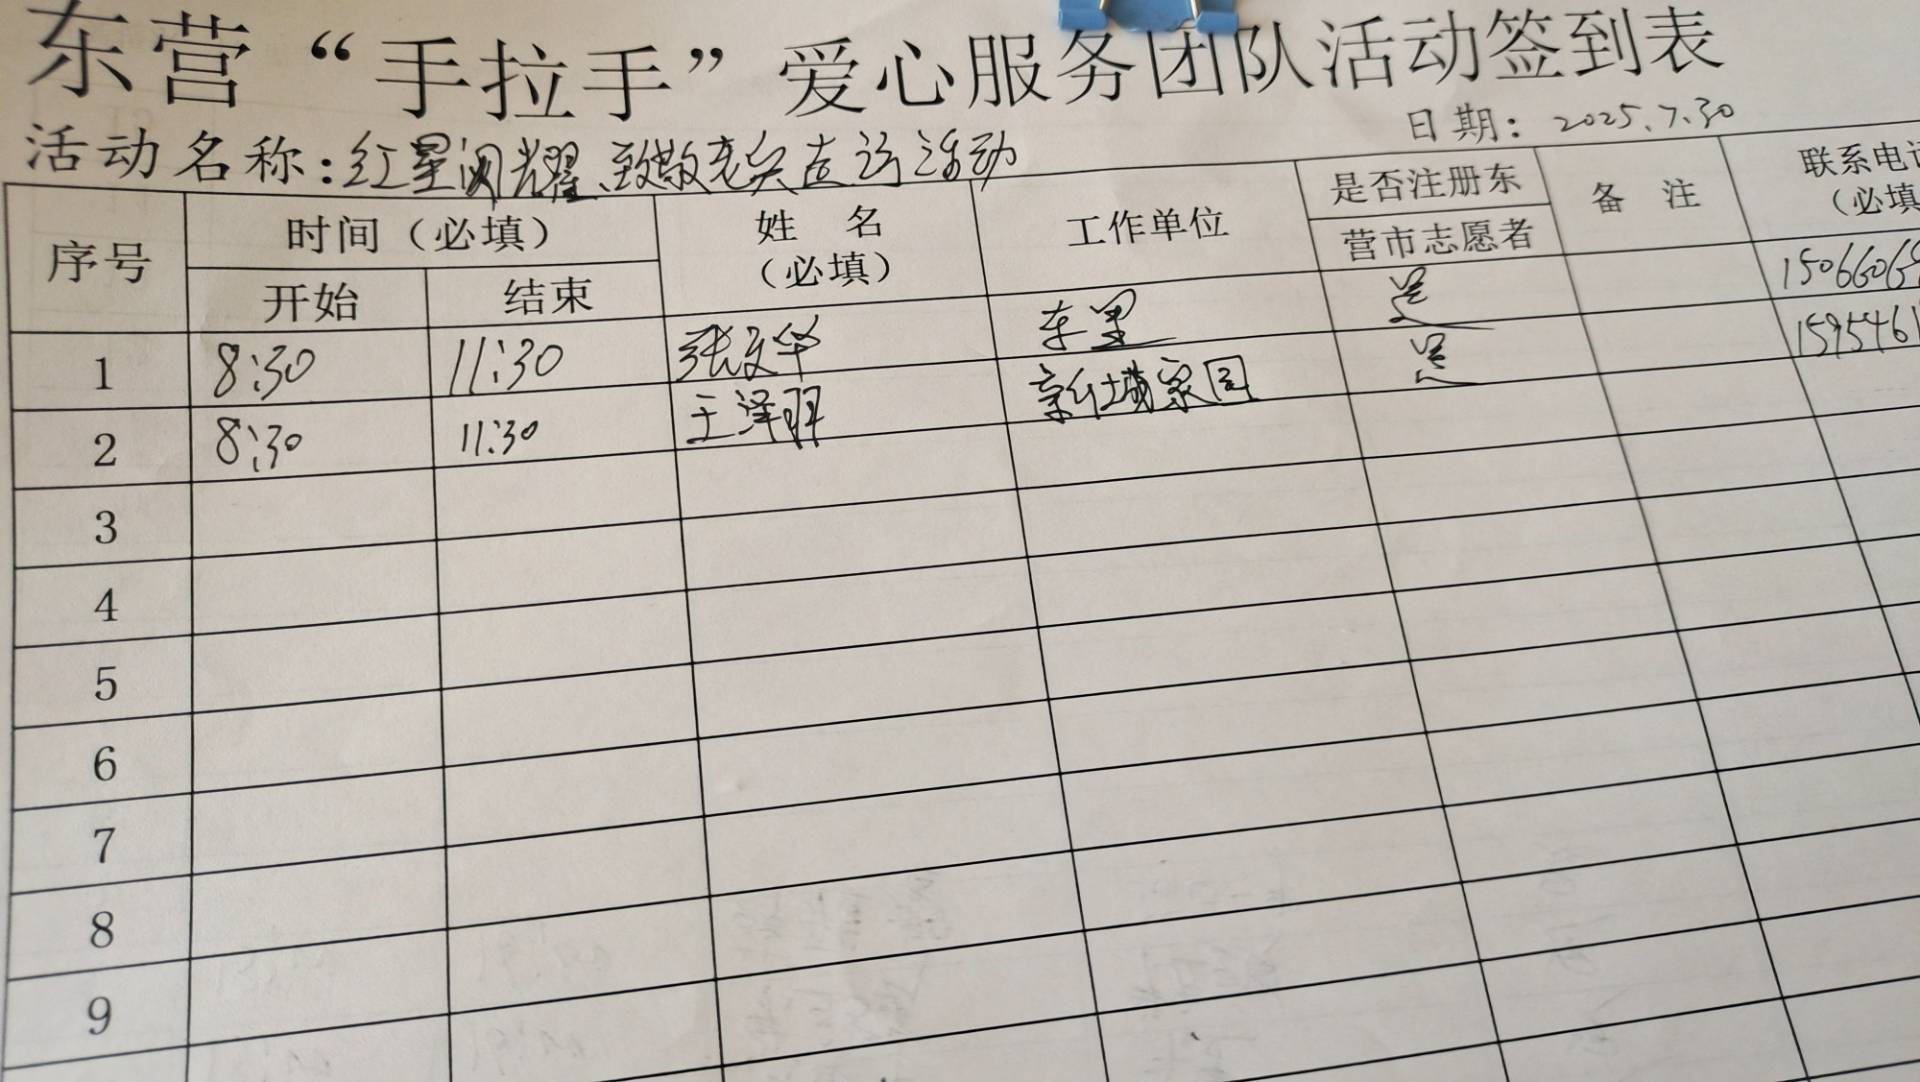 东营“手拉手”爱心服务团队活动签到表
活动名称：红星闪耀、致敬老兵走访活动
日期：2025.7.30
序号 时间（必填） 姓 名（必填） 工作单位 是否注册东营市志愿者 备 注 联系电（必填
开始 结束
1 8:30 11:30 张文华 是 1506606
2 8:30 11:30 王泽羽 家园 是 1595461
3
4
5
6
7
8
9